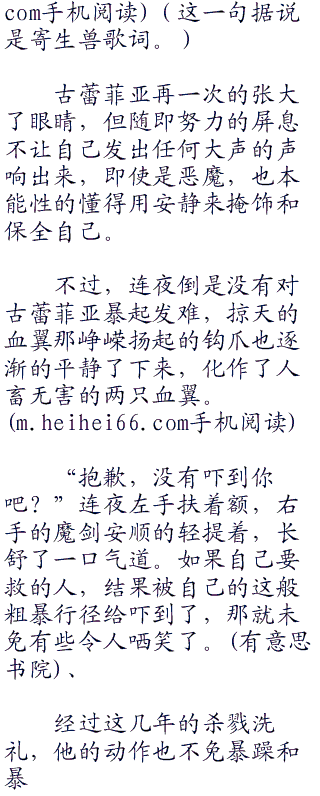 com手机阅读)(这一句据说
是寄生兽歌词。)
古蕾菲亚再一次的张大
了眼睛，但随即努力的屏息
不让自己发出任何大声的声
响出来，即使是恶魔，也本
能性的懂得用安静来掩饰和
保全自己。
不过，连夜倒是没有对
古蕾菲亚暴起发难，掠天的
血翼那峥嵘扬起的钩爪也逐
渐的平静了下来，化作了人
畜无害的两只血翼。
(m.heihei66.com手机阅读)
“抱歉，没有吓到你
吧？”连夜左手扶着额，右
手的魔剑安顺的轻提着，长
舒了一口气道。如果自己要
救的人，结果被自己的这般
粗暴行径给吓到了，那就未
免有些令人哂笑了。(有意思
书院)、
经过这几年的杀戮洗
礼，他的动作也不免暴躁和
暴